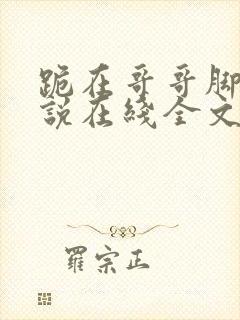 跪在哥哥脚
说在线全文
羅宗正